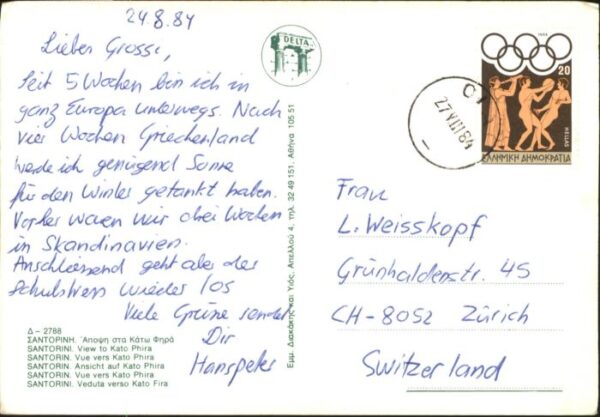 24.8.84
Lieber Grossi,
Seit 5 Wochen bin ich in
ganz Europa unterwegs. Nach
vier Wochen Griechenland
werde ich genügend Sonne
für den Winter getankt haben.
Vorher waren wir drei Wochen
in Skandinavien.
Anschliessend geht aber der
Schulstress wieder los
Viele Grüsse sendet
Dir
Hanspeter
Δ - 2788
ΣΑΝΤΟΡΙΝΗ. Άποψη στα Κάτω Φηρά
SANTORINI. View to Kato Phira
SANTORIN. Vue vers Kato Phira
SANTORIN. Ansicht auf Kato Phira
SANTORINI. Vue vers Kato Phira
SANTORINI. Veduta verso Kato Fira
DELTA
Εμμ. Διακάκης και Υιός, Απελλού 4, τηλ. 32 49 151, Αθήνα 105 51
1984
20
HELLAS
ΕΛΛΗΝΙΚΗ ΔΗΜΟΚΡΑΤΙΑ
27 VIII 84
Frau
L. Weisskopf
Grünhaldenstr. 45
CH-8052 Zürich
Switzerland